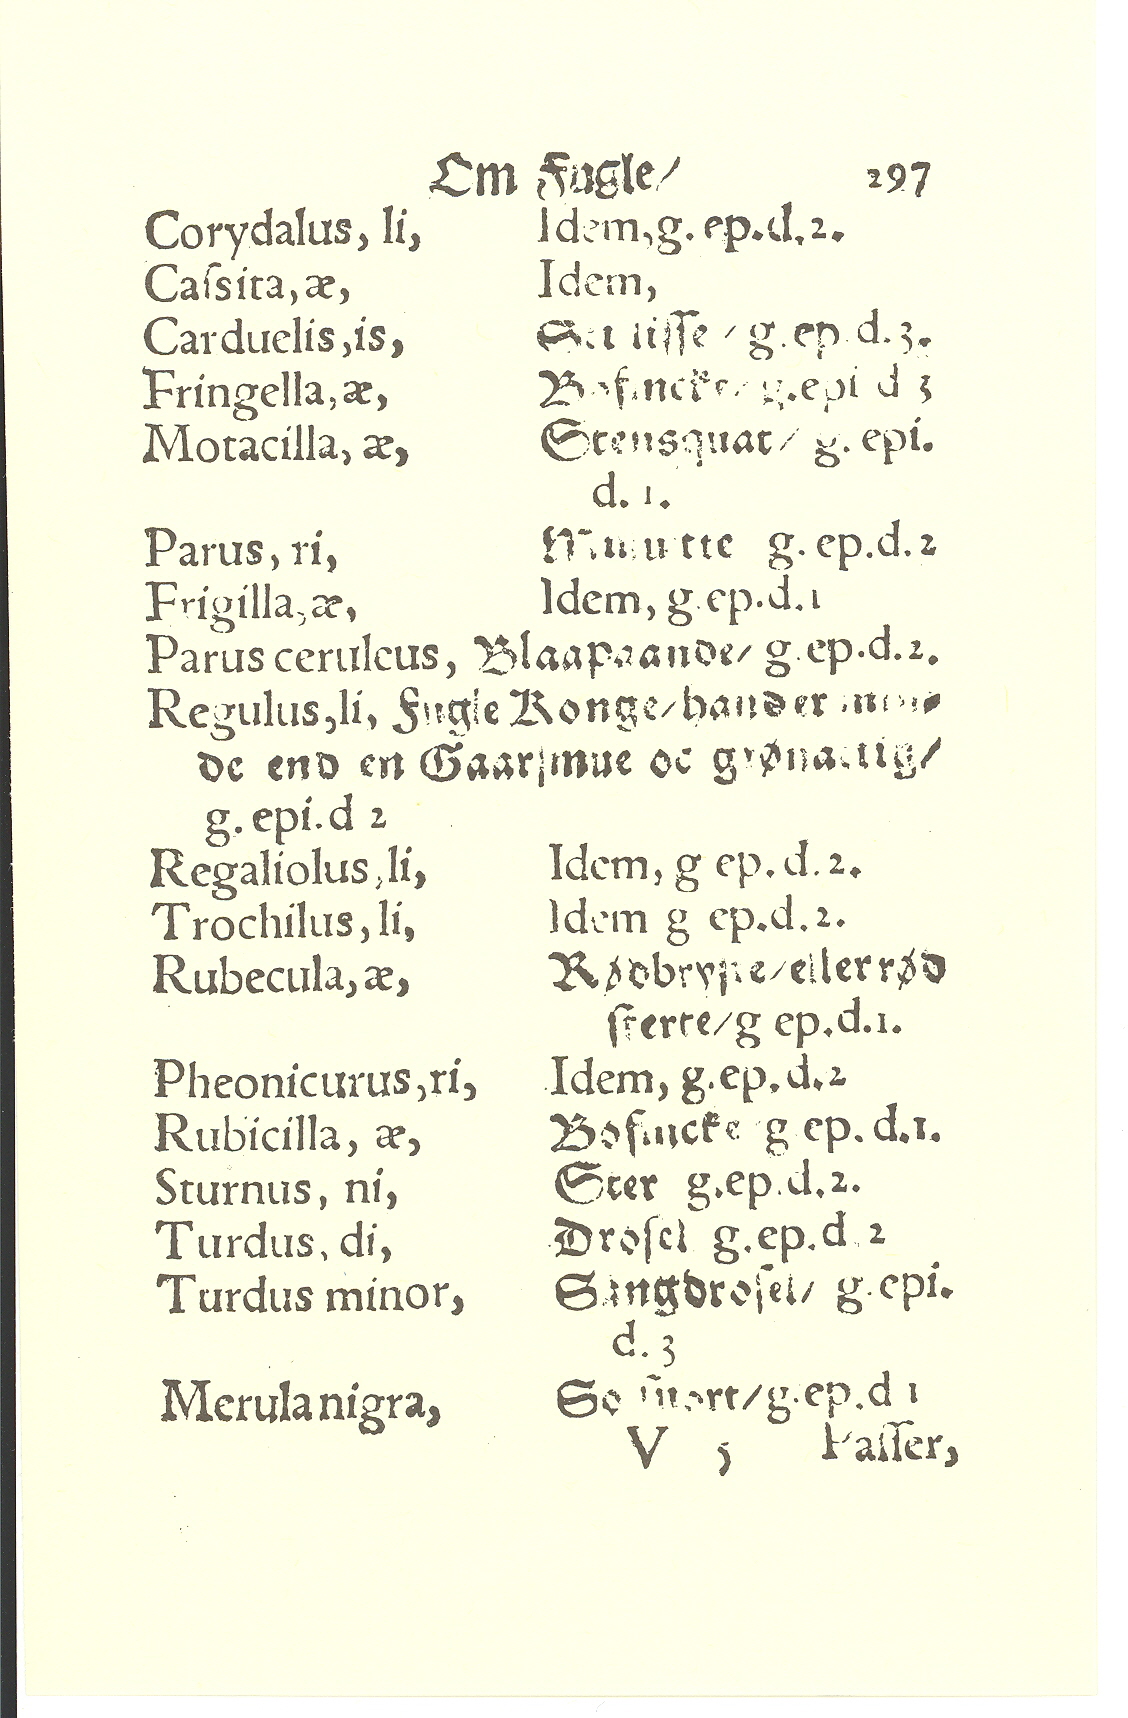 Om Fugle/ 297
Corydalus, li, Idem, g. ep. d. 2.
Caſsita, æ, Idem,
Carduelis, is, g. ep d. 3.
Fringella, æ, Boſincke/ g. epi d 3
Motacilla, æ, Stensquat/ g. epi.
d. 1.
Parus, ri, g. ep. d. 2
Frigilla, æ, Idem, g. ep. d. 1
Parus ceruleus, Blaapaande/ g. ep. d. 2.
Regulus, li, Fugle Konge/ hand er
de end en Gaarſmue oc grønactig/
g. epi. d 2
Regaliolus, li, Idem, g ep. d. 2.
Trochilus, li, Idem g ep. d. 2.
Rubecula, æ, Rødbryste/ eller rød
sterte/ g ep. d. 1.
Pheonicurus, ri, Idem, g. ep. d. 2
Rubicilla, æ, Boſincke g ep. d. 1.
Sturnus, ni, Ster g. ep. d. 2.
Turdus, di, Droſel g. ep. d 2
Turdus minor, Sangdroſel/ g. epi.
d. 3
Merula nigra, g. ep. d 1
V 5 Paſſer,